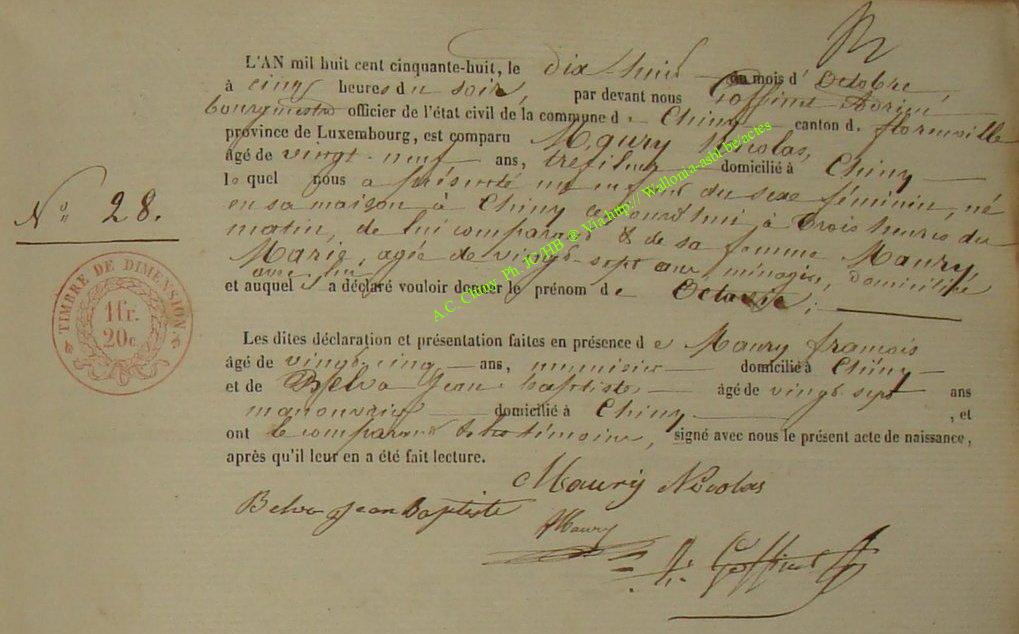 L'AN mil huit cent cinquante-huit, le dix-huit du mois d'Octobre,
à cinq heures du soir, par devant nous Goffinet Adrien
bourgmestre officier de l'état civil de la commune de Chiny canton de florenville
province de Luxembourg, est comparu Maury Nicolas,
âgé de vingt-neuf ans, domicilié à Chiny
lequel nous a présenté un enfant du sexe féminin, né
en sa maison à Chiny ce jourd'hui à trois heures du
matin, de lui comparant & de sa femme Maury
Marie, agée de vingt-sept ans, ménagère, domiciliée
avec lui
et auquel a déclaré vouloir donner le prénom de Octavie;
Les dites déclaration et présentation faites en présence de Maury françois
âgé de vingt-cinq ans, menuisier domicilié à Chiny
et de Belva Jean-baptiste âgé de vingt-sept ans
manouvrier domicilié à Chiny, et
ont le comparant & les témoins, signé avec nous le présent acte de naissance,
après qu'il leur en a été fait lecture.
Maury Nicolas
Belva Jean Baptiste
Maury
A. Goffinet
N° 28.
TIMBRE DE DIMENSION
1fr.
20c.
A.C. Chiny Ph. JC/HB ® Via http:// Wallonia-asbl-be/actes